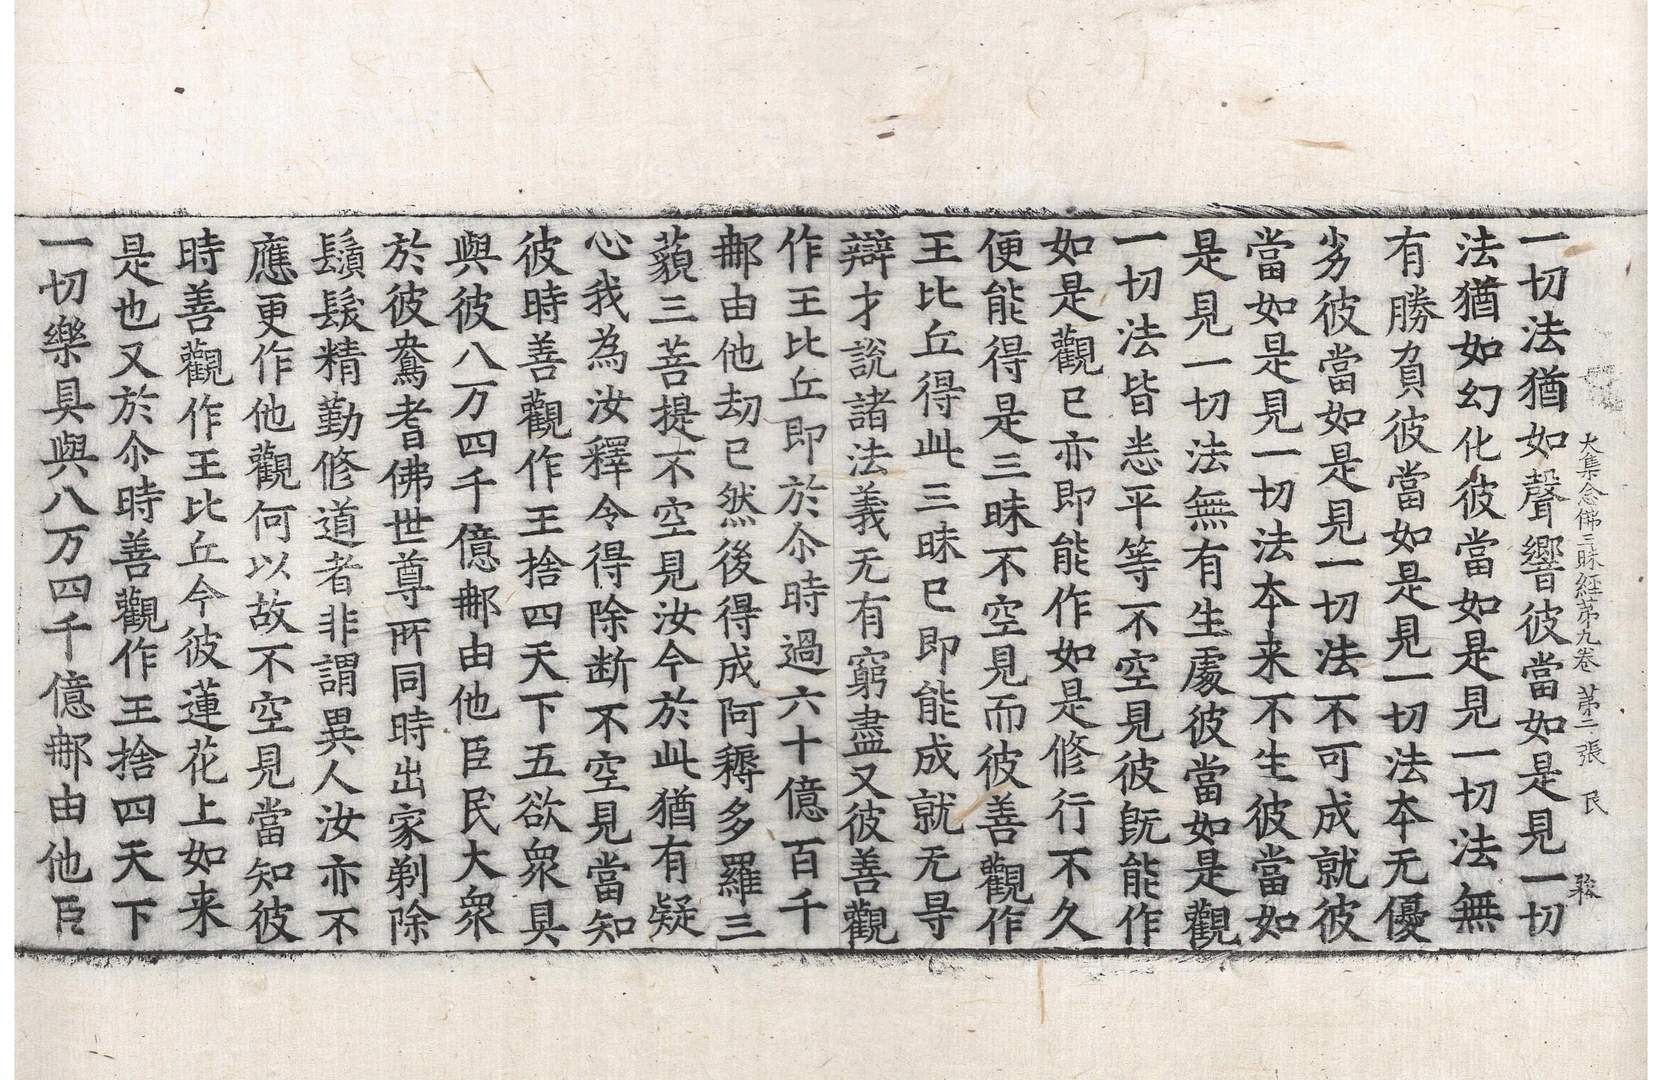 大集念佛三昧経苐九卷 苐二張 民
一切法猶如聲響彼當如是見一切
法猶如幻化彼當如是見一切法無
有勝負彼當如是見一切法本无優
劣彼當如是見一切法不可成就彼
當如是見一切法本来不生彼當如
是見一切法無有生處彼當如是觀
一切法皆悉平等不空見彼旣能作
如是觀已亦即能作如是修行不久
便能得是三昧不空見而彼善觀作
王比丘得此三昧已即能成就无㝵
辯才說諸法義无有窮盡又彼善觀
作王比丘即於尒時過六十億百千
𨚗由他劫已然後得成阿耨多羅三
藐三菩提不空見汝今於此猶有疑
心我為汝釋令得除断不空見當知
彼時善觀作王捨四天下五欲衆具
與彼八万四千億𨚗由他臣民大衆
於彼鴦耆佛世尊所同時出家剃除
鬚髮精勤修道者非謂異人汝亦不
應更作他觀何以故不空見當知彼
時善觀作王比丘今彼蓮花上如来
是也又於尒時善觀作王捨四天下
一切樂具與八万四千億𨚗由他臣